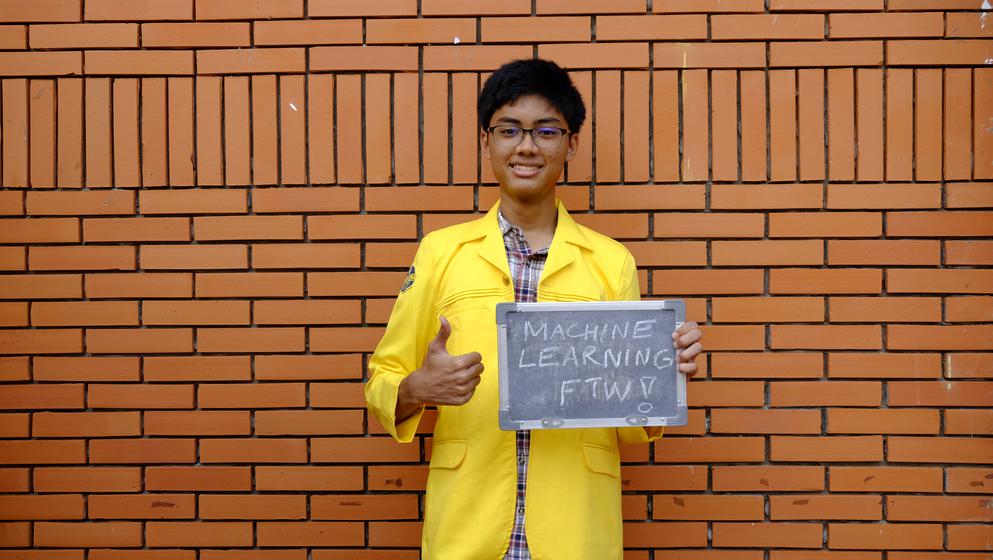 MACHINE
LEARNING
FTW!